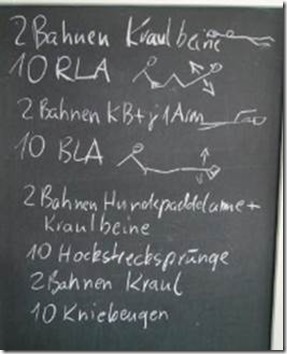 2 Bahnen Kraulbeine
10 RLA
2 Bahnen KB + j 1 Arm
10 BLA
2 Bahnen Hundepaddelarme +
Kraulbeine
10 Hockstrecksprünge
2 Bahnen Kraul
10 Kniebeugen